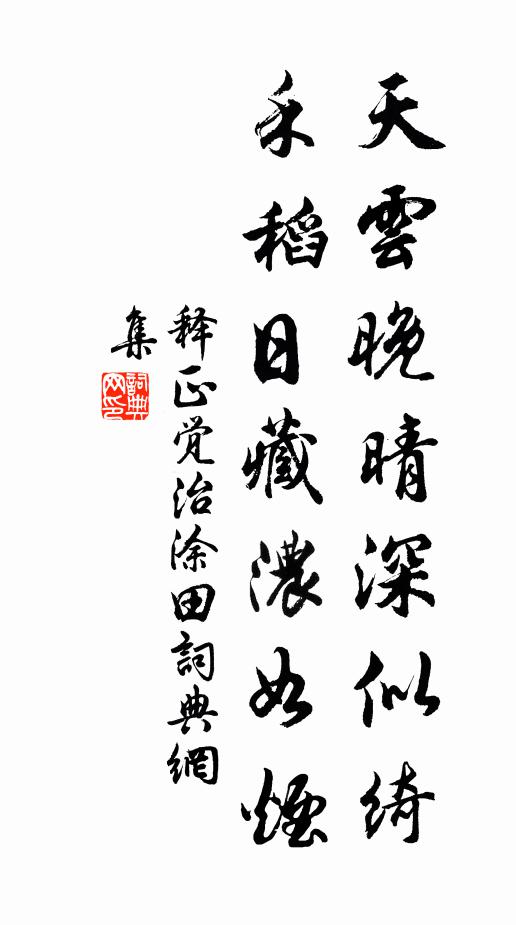 天雲晚晴深似綺
禾稻日藏濃如煙
释正觉治涂田詞典網
集
詞典网印